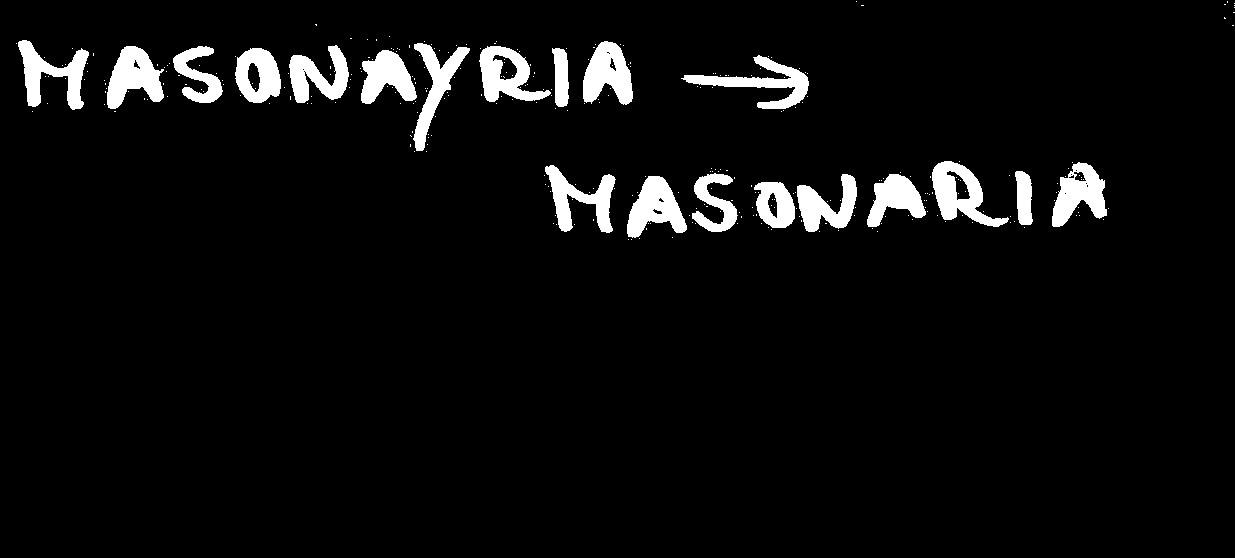 MASONAYRIA →
MASONARIA